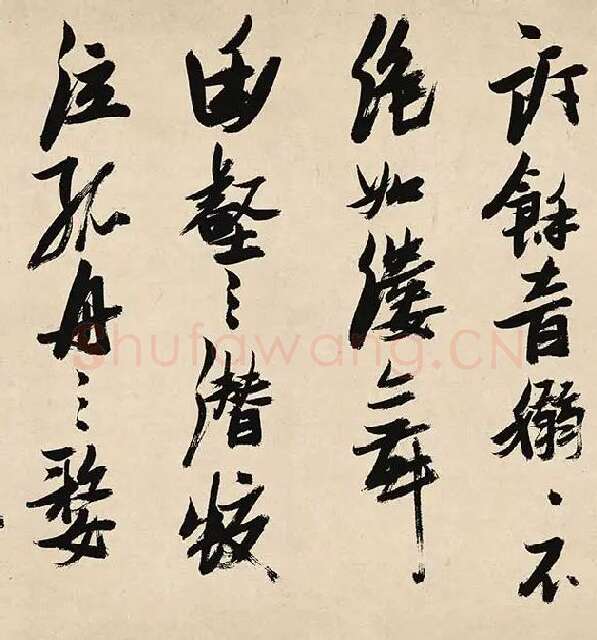 訴餘音嫋〻不
絶如縷舞
幽壑之潛蛟
泣孤舟之嫠
Shufawang.CN